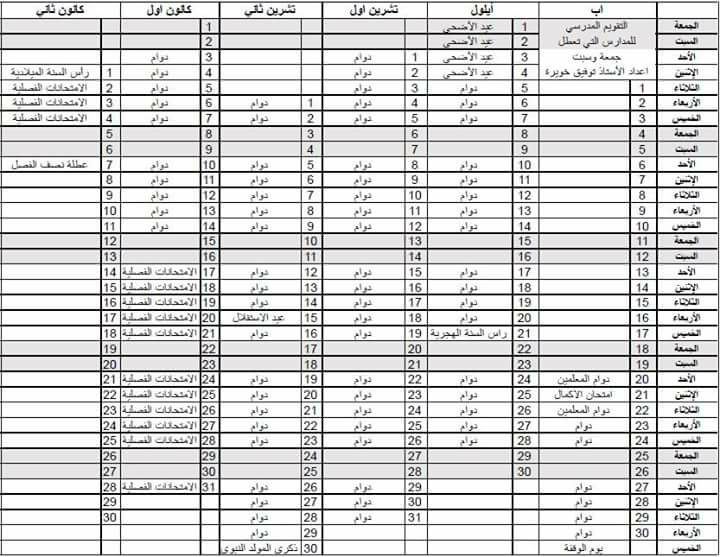 اب أيلول تشرين اول تشرين ثاني كانون اول كانون ثاني
الجمعة التقويم المدرسي 1 عيد الأضحى 1
السبت للمدارس التي تعطل 2 عيد الأضحى 2
الأحد جمعة وسبت 3 عيد الأضحى 1 دوام 3 دوام
الإثنين اعداد الأستاذ توفيق خويرة 4 عيد الأضحى 2 دوام 4 دوام 1 رأس السنة الميلادية
الثلاثاء 1 5 دوام 3 دوام 5 دوام 2 الامتحانات الفصلية
الأربعاء 2 6 دوام 4 دوام 1 دوام 6 دوام 3 الامتحانات الفصلية
الخميس 3 7 دوام 5 دوام 2 دوام 7 دوام 4 الامتحانات الفصلية
الجمعة 4 8 6 3 8 5
السبت 5 9 7 4 9 6
الأحد 6 10 دوام 8 دوام 5 دوام 10 دوام 7 عطلة نصف الفصل
الإثنين 7 11 دوام 9 دوام 6 دوام 11 دوام 8
الثلاثاء 8 12 دوام 10 دوام 7 دوام 12 دوام 9
الأربعاء 9 13 دوام 11 دوام 8 دوام 13 دوام 10
الخميس 10 14 دوام 12 دوام 9 دوام 14 دوام 11
الجمعة 11 15 13 10 15 12
السبت 12 16 14 11 16 13
الأحد 13 17 دوام 15 دوام 12 دوام 17 الامتحانات الفصلية 14
الإثنين 14 18 دوام 16 دوام 13 دوام 18 الامتحانات الفصلية 15
الثلاثاء 15 19 دوام 17 دوام 14 دوام 19 الامتحانات الفصلية 16
الأربعاء 16 20 دوام 18 دوام 15 عيد الاستقلال 20 الامتحانات الفصلية 17
الخميس 17 21 راس السنة الهجرية 19 دوام 16 دوام 21 الامتحانات الفصلية 18
الجمعة 18 22 20 17 22 19
السبت 19 23 21 18 23 20
الأحد 20 دوام المعلمين 24 دوام 22 دوام 19 دوام 24 الامتحانات الفصلية 21
الإثنين 21 امتحان الاكمال 25 دوام 23 دوام 20 دوام 25 الامتحانات الفصلية 22
الثلاثاء 22 دوام المعلمين 26 دوام 24 دوام 21 دوام 26 الامتحانات الفصلية 23
الأربعاء 23 دوام 27 دوام 25 دوام 22 دوام 27 الامتحانات الفصلية 24
الخميس 24 دوام 28 دوام 26 دوام 23 دوام 28 الامتحانات الفصلية 25
الجمعة 25 29 27 24 29 26
السبت 26 30 28 25 30 27
الأحد 27 دوام 29 دوام 26 دوام 31 الامتحانات الفصلية 28
الإثنين 28 دوام 30 دوام 27 دوام 29
الثلاثاء 29 دوام 31 دوام 28 دوام 30
الأربعاء 30 دوام 29 دوام
الخميس يوم الوقفة 30 ذكرى المولد النبوي